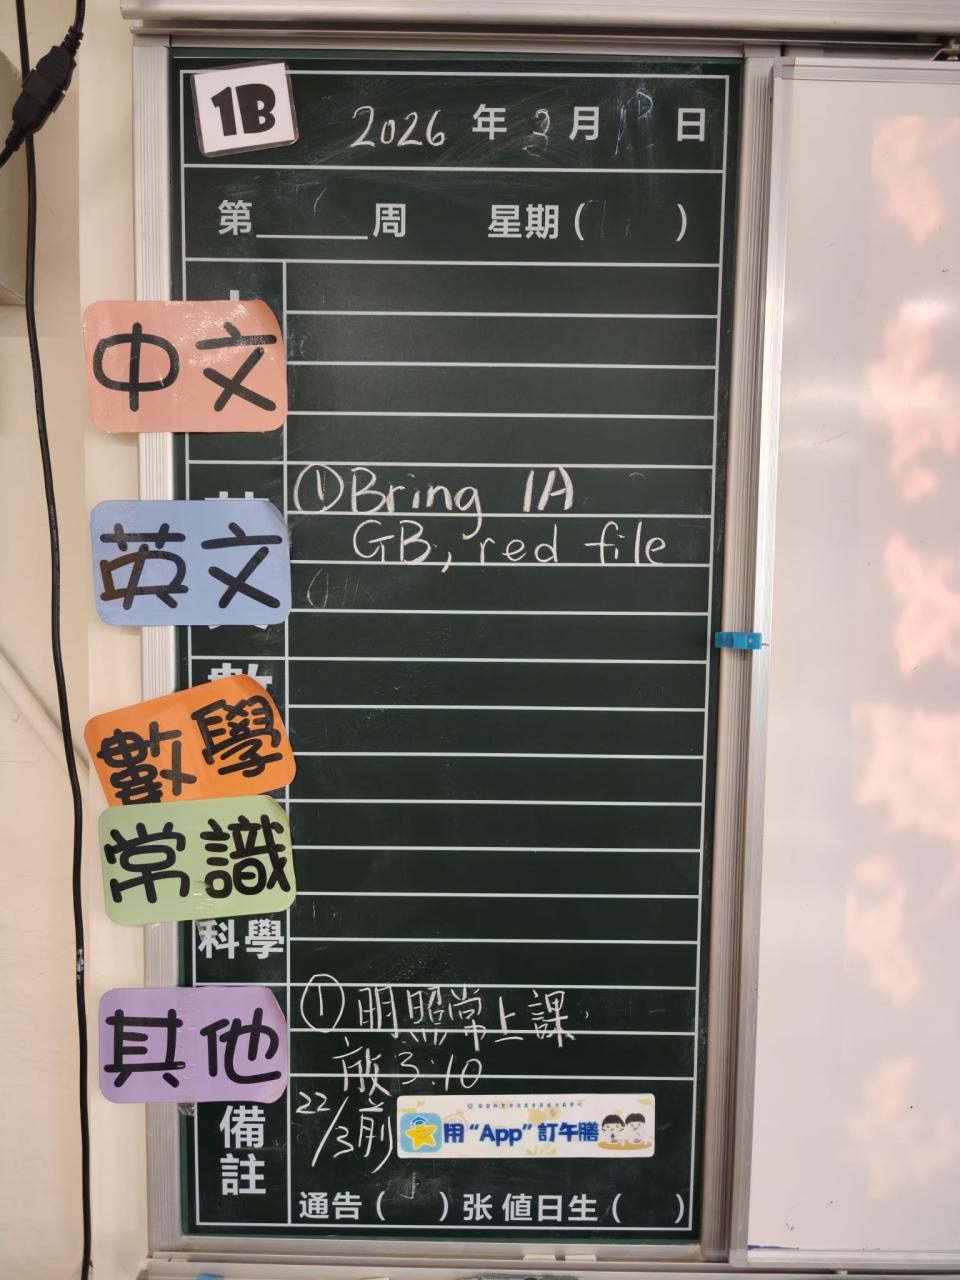 1B
2026 年 3 月 日
第 周 星期( )
中文
英文
①Bring 1A
GB, red file
數學
常識
科學
其他
①明照常上課
放3:10
備註
22/3前
用“App”訂午膳
通告( )张 值日生( )